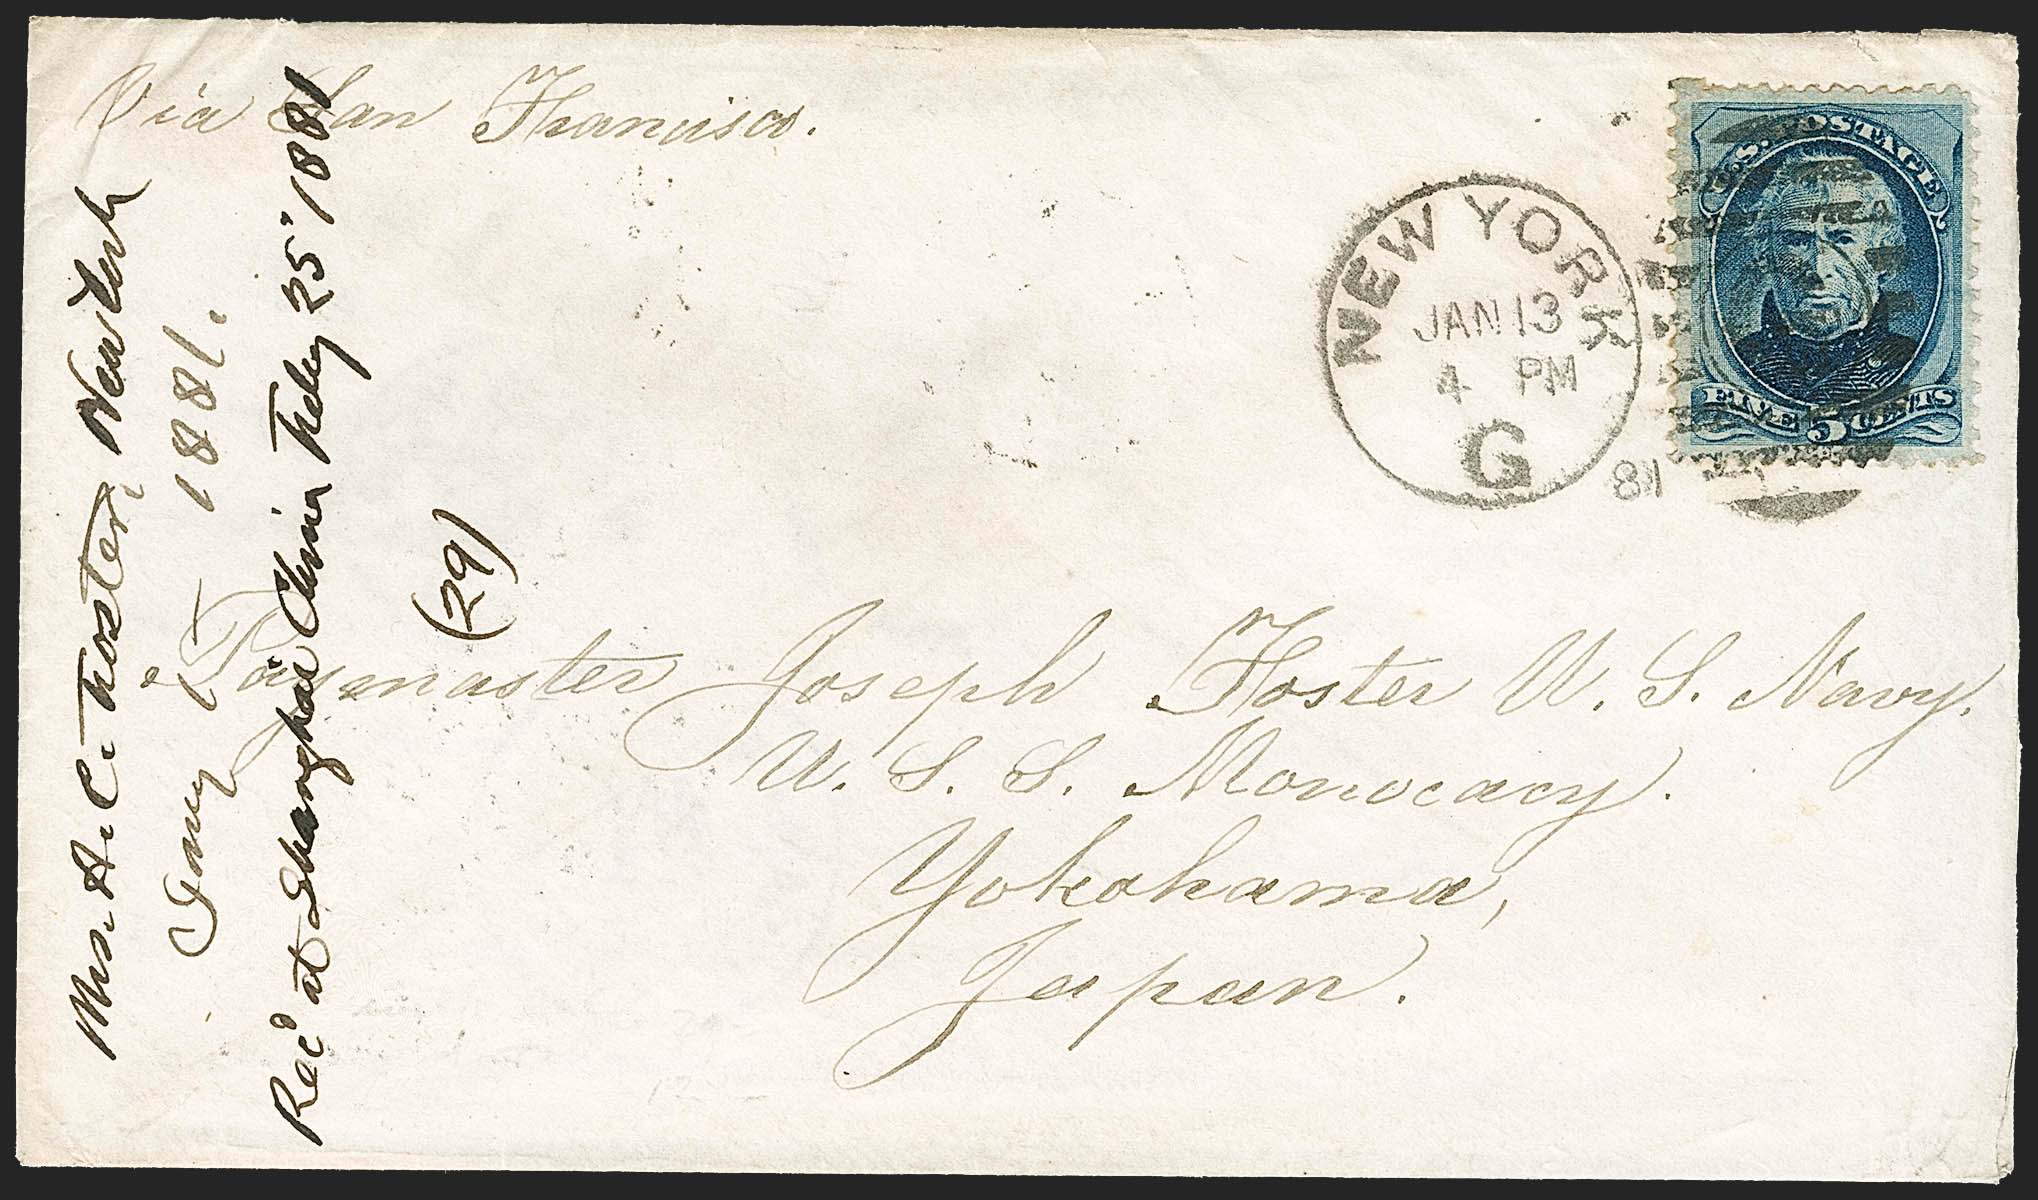 Via San Francisco.
U.S. POSTAGE
FIVE 5 CENTS
NEW YORK
JAN 13
4 PM
G
81
Paymaster Joseph Foster U. S. Navy.
U. S. S. Monocacy.
Yokohama,
Japan.
Mrs. A. C. Foster, New York
Jany 1881.
Rec'd at Shanghai China Feby 25" 1881
(29)